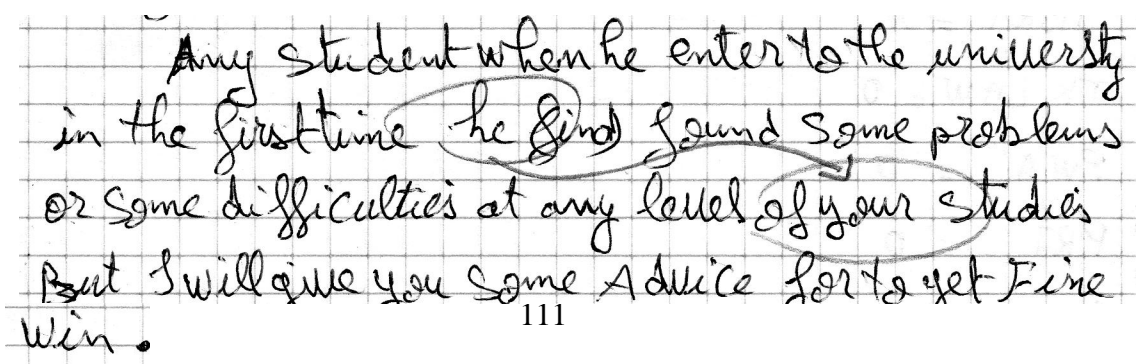 Any student when he enter to the universty
in the first time he find) found some problems
or some difficulties at any level of your studies
But I will give you some Advice for to get Fine
111
Win.